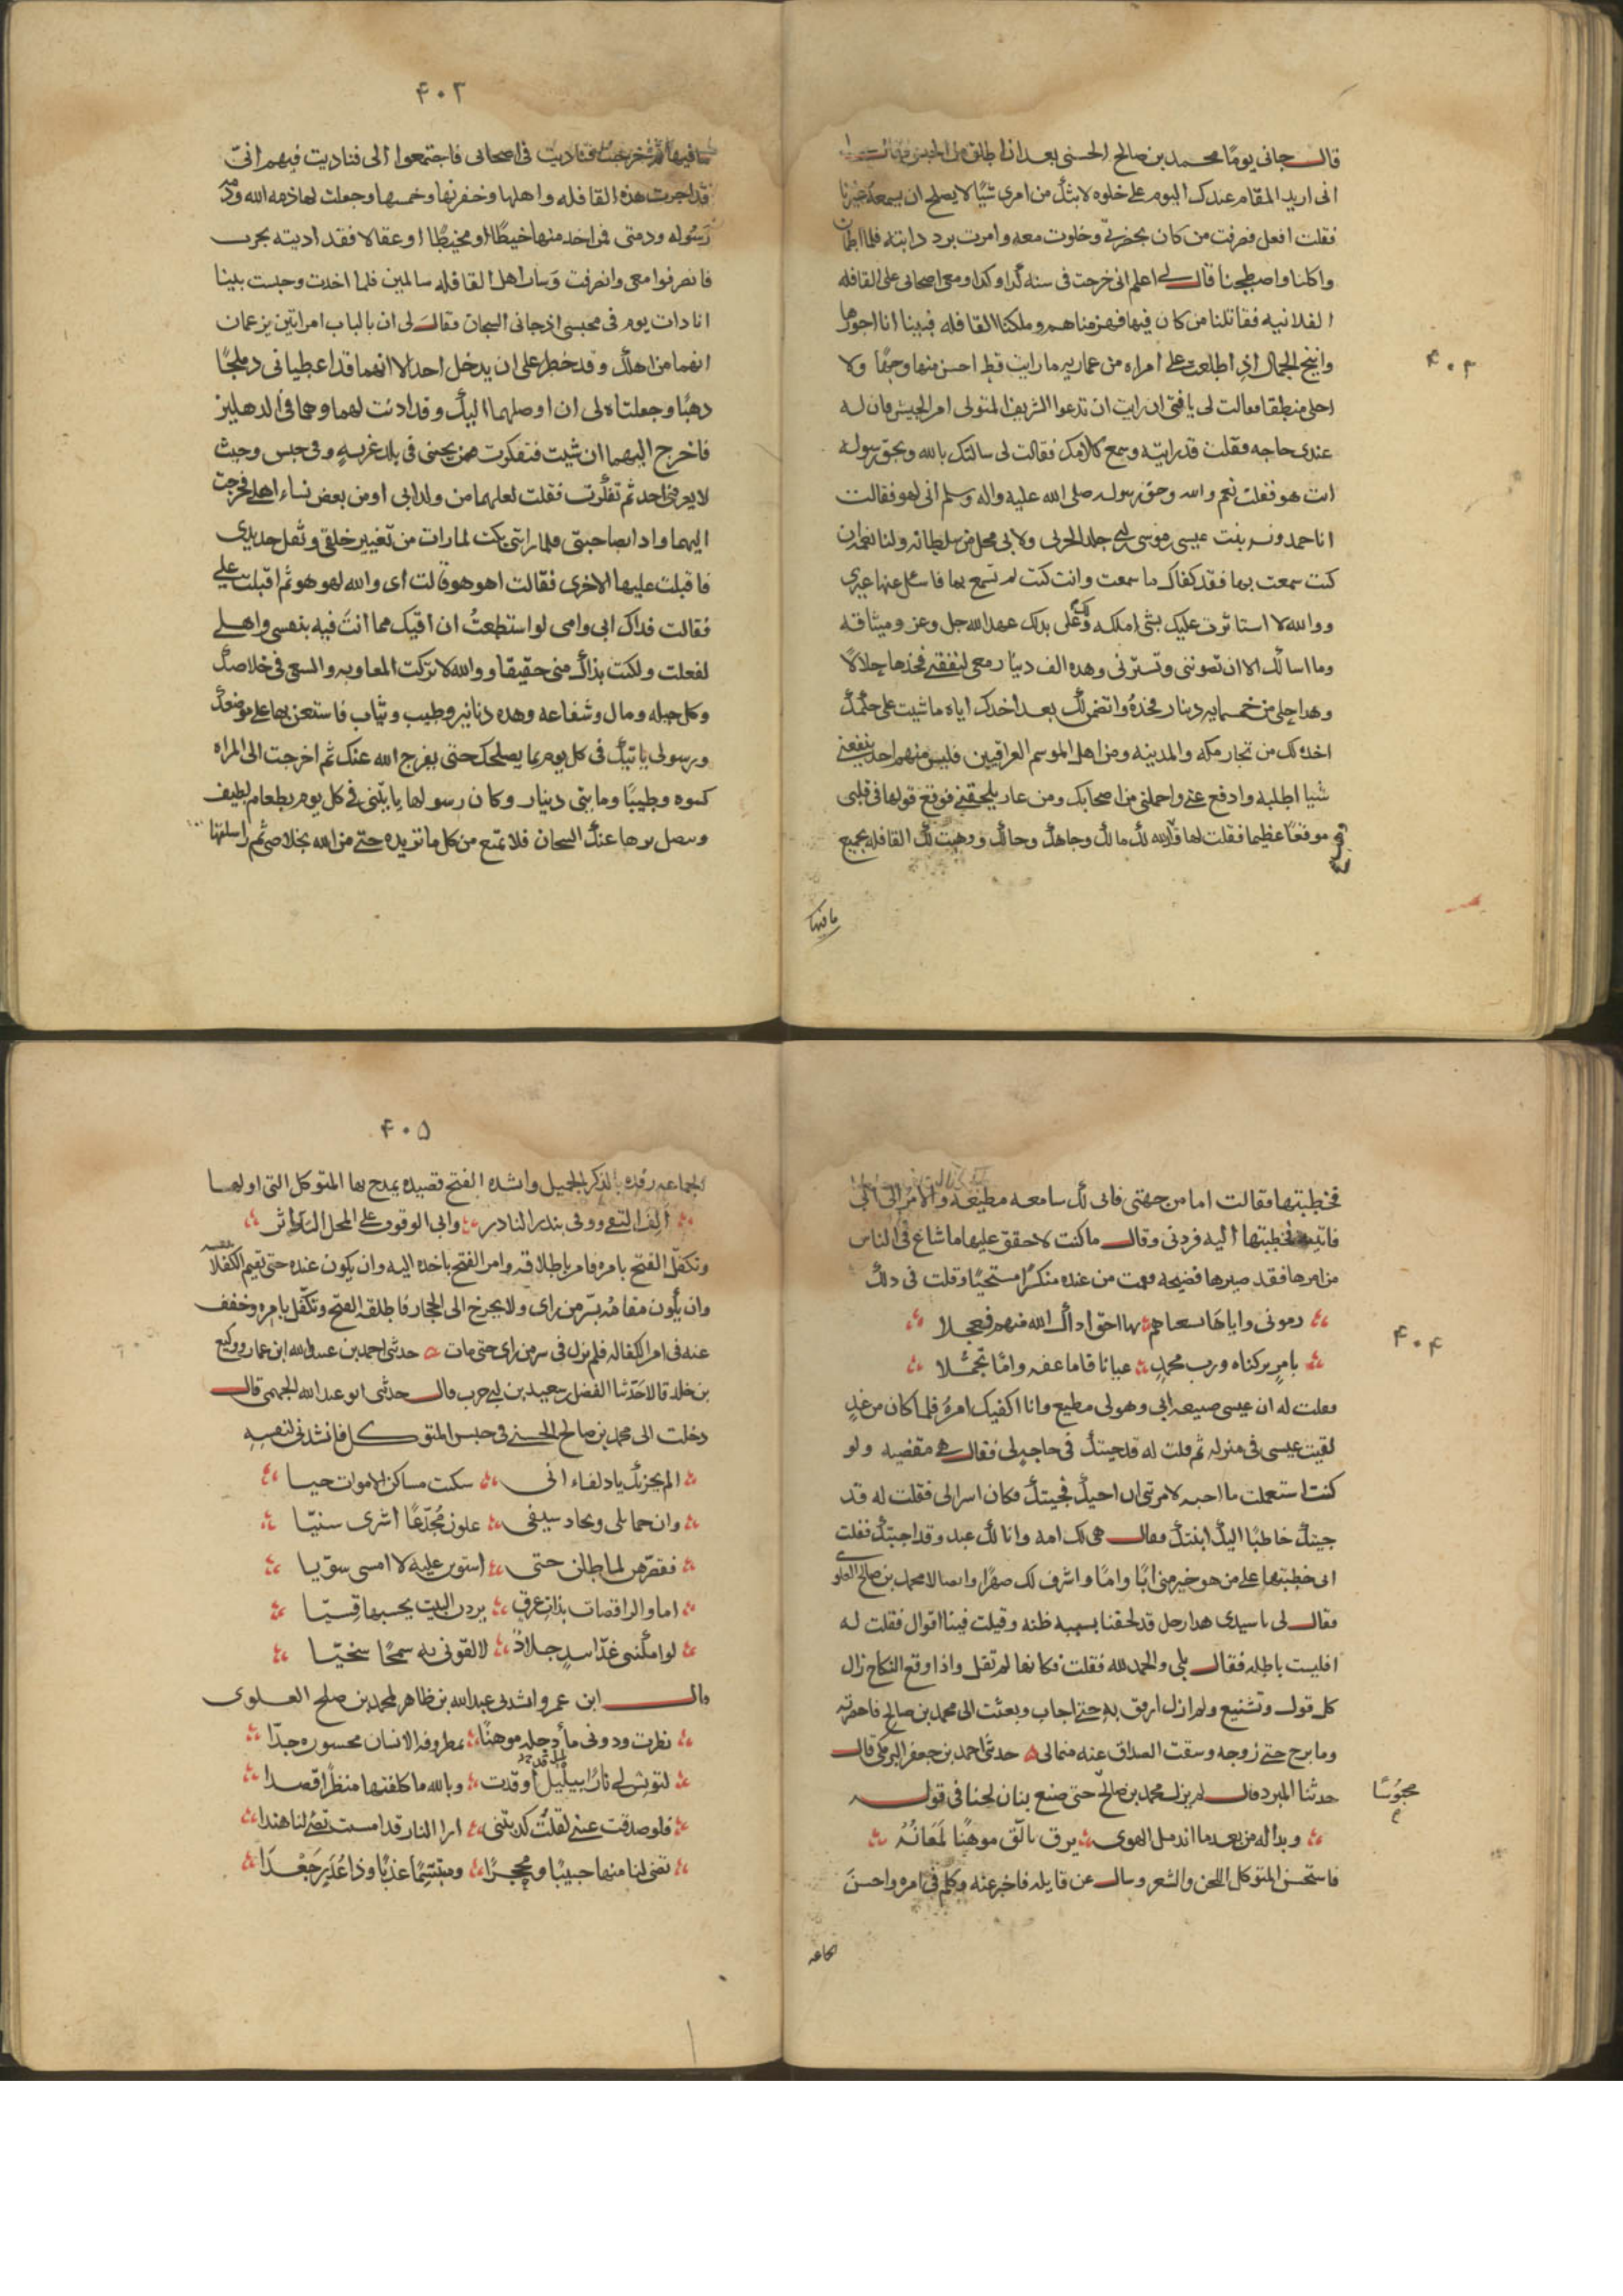 قال جانى يومًا محمد بن صالح الحسنى بعد ان اطلق من الحبس
انى اريد المقام عندك اليوم على خلوه لابثك من امرى شيًا لا يصلح ان يسمعه غيرنا
فقلت افعل فصرفت من كان بحضرتى وخلوت معه وامرت برد دابته فلما اطمان
واكلنا واصطبحنا قال لى اعلم انى خرجت فى سنه كذا وكذا ومعى اصحابى على القافله
الفلانيه فقاتلنا من كان فيها فهزمناهم وملكنا القافله فبينا انا احوزها
وانيخ الجمال اذ اطلعت على امراه من عماريه ما رايت قط احسن منها وجهًا ولا
احلى منطقا فقالت لى يا فتى ان رايت ان تدعوا الشريف المتولى امر الجيش فان له
عندى حاجه فقلت قد رايته وسمع كلامك فقالت لى سالتك بالله وبحق رسوله
انت هو فقلت نعم والله وحق رسوله صلى الله عليه واله وسلم انى لهو فقالت
انا حمدونه بنت عيسى بن موسى بن ابى خالد الحربى ولابى محل من سلطانه ولنا نعمه ان
كنت سمعت بها فقد كفاك ما سمعت وانت كنت لم تسمع بها فاسئل عنها غيرى
ووالله لا استاثرت عليك بشى املكه ولك على بذلك عهد الله جل وعز وميثاقه
وما اسالك الا ان تصوننى وتسترنى وهذه الف دينار معى لنفقتى فخذها حلالًا
وهذا حلى من خمسمايه دينار فخذهُ واتضمن لك بعد اخذك اياه ما شيت على حكمك
اخذه لك من تجار مكه والمدينه ومن اهل الموسم العراقيين فليس منهم احد يمنعنى
شيا اطلبه وادفع عنى واحملنى من اصحابك ومن عار يلحقنى فوقع قولها فى قلبى
موقعًا عظيما فقلت لها قد وهب الله لك مالك وجاهك وحالك ووهبت لك القافله بجميع
ما فيها
۴۰۲
۴۰۳
ما فيها ثم خرجت فناديت فى اصحابى فاجتمعوا الى فناديت فيهم انى
قد اجرت هذه القافله واهلها وخفرتها وحميتها وجعلت لها ذمه الله وذمه
رسُوله وذمتى فمن اخذ منها خيطًا او مخيطًا او عقالا فقد اذيته بحرب
فانصرفوا معى وانصرفت وسار اهل القافله سالمين فلما اخذت وحبست بينا
انا ذات يوم فى محبسى اذ جانى السجان وقال لى ان بالباب امراتين يزعمان
انهما من اهلك وقد حظر على ان يدخل احد الا انهما قد اعطيانى دملجًا
ذهبًا وجعلتاه لى ان اوصلهما اليك وقد اذنت لهما وهما فى الدهليز
فاخرج اليهما ان شيت فتفكرت فمن يجينى فى بلد غربهٍ وفى حبس وحيث
لا يعرفنى احد ثم تفكرت فقلت لعلهما من ولد ابى او من بعض نساء اهلى فخرجت
اليهما واذا بصاحبتى فلما راتنى بكت لما رات من تغيير خلقى وثقل حديدى
فاقبلت عليها الاخرى فقالت اهو هو قالت اى والله لهو هو ثم اقبلت على
فقالت فداك ابى وامى لو استطعتُ ان اقيك مما انتَ فيه بنفسى واهلى
لفعلت ولكنت بذاك منى حقيقا ووالله لا تركت المعاونه والسعى فى خلاصك
وكل حيله ومال وشفاعه وهذه دنانير وطيب وثياب فاستعن بها على موضعك
ورسولى ياتيك فى كل يوم بما يصلحك حتى يفرج الله عنك ثم اخرجت الى المراه
كسوه وطيبًا ومايتى دينار وكان رسولها ياتينى فى كل يوم بطعام لطيف
وتصل برها عند السجان فلا تمنع من كل ما تريده حتى من الله بخلاصى ثم راسلتها
فخطبتها فقالت اما من جهتى فانى لك سامعه مطيعه والامر الى ابى
فاتيته فخطبتها اليه فردنى وقال ما كنت لاحقق عليها ما شاع فى الناس
من امرها فقد صيرها فضيحه فقمت من عنده منكرًا مستحييًا وقلت فى ذلك
رمونى واياها بشنعاهم بها احق ادال الله منهم فعجلا
بامرٍ تركناه ورب محمدٍ عيانا فاما عفه واما تجملا
فقلت له ان عيسى صنيعه ابى وهو لى مطيع وانا اكفيك امرهُ فلما كان من غدٍ
لقيت عيسى فى منزله ثم قلت له قد جيتك فى حاجهٍ لى فقال هى مقضيه ولو
كنت استعملت ما احبه لامرتنى ان اجيك فجيتك فكان اسر الى فقلت له قد
جيتك خاطبًا اليك ابنتك فقال هى لك امه وانا لك عبد وقد اجبتك فقلت
انى خطبتها على من هو خير منى ابًا وامًا واشرف لك صهرًا واتصالا محمد بن صالح العلوى
فقال لى يا سيدى هذا رجل قد لحقنا بسببه ظنه وقيلت فينا اقوال فقلت له
افليست باطله فقال بلى والحمد لله فقلت فكانها لم تقل واذا وقع النكاح زال
كل قول وتشنيع ولم ازل ارفق به حتى اجاب وبعثت الى محمد بن صالح فاحضرته
وما برح حتى زوجه وسقت الصداق عنه من مالى حدثنى احمد بن جعفر البرمكى قال
حدثنا المبرد قال لم يزل محمد بن صالح حتى صنع بنان لحنا فى قوله
محبُوسًا
وبدا له من بعد ما اندمل الهوى برق تالّق موهنًا لمعانُهُ
فاستحسن المتوكل اللحن والشعر وسال عن قايله فاخبر عنه وكلم فى امره واحسنَ
الجماعه
۴۰۴
۴۰۵
الجماعه رفده بالذكر الجميل وانشده الفتح قصيده يمدح بها المتوكل التى اولها
اَلِفَ التقى ووفى بنذر الناذر وابى الوقوف على المحل الداثر
وتكفّل الفتح بامره فامر باطلاقه وامر الفتح باخذه اليه وان يكون عنده حتى يقيم الكفلا
وان يكون مقامُه بسّر من راى ولا يخرج الى الحجاز فاطلقه الفتح وتكفّل بامره وخفف
عنه فى امر الكفاله فلم يزل فى سر من راى حتى مات حدثنى احمد بن عبيد الله ابن عمار ووكيع
بن خلف قالا حدّثنا الفضل بن سعيد بن ابى حرب قال حدثنى ابو عبد الله الجهمى قال
دخلت الى محمد بن صالح الحسنى فى حبس المتوكل فانشدنى لنفسه
الم يحزنك يا ذلفاء انى سكنت مساكن الاموات حيا
وان حمايلى ونجاد سيفى علون مُجدّعًا اشرى سنيّا
فقصّرهن لما طلن حتى استوين عليه لا امسى سوّيا
اما والراقصات بذات عرقٍ يردن البيت يحسبها قسيّا
لو امكننى غدًا سدٍ جلادٌ لالفونى به سمحًا سخيّا
قال ابن عمر وانشدنى عبد الله بن طاهر لمحمد بن صالح العلوى
نظرت ودونى ماُ دجله موهنًا بمطروفه الانسان محسوره جدّا
لتونس لى نارًا بليل اوقدت وبالله ما كلفتها منظرًا قصدا
فلو صدقت عينى لقلتُ كذبتنى ارا النار قد امست تضُى لنا هندا
تضى لنا منها جبينًا ومحجرًا ومبتسِمًا عذبًا وذا غُدَرٍ جَعْدَا